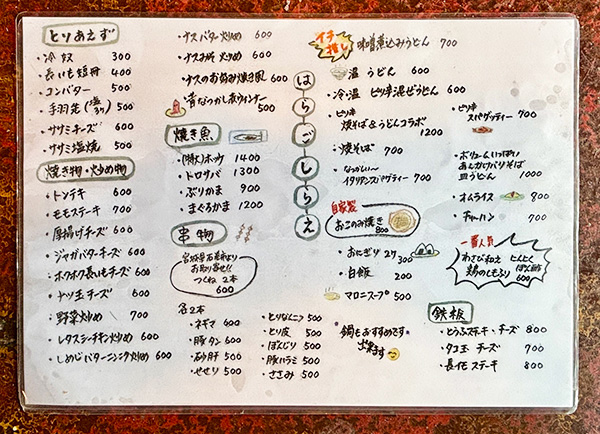 とりあえず
・冷奴 300
・長いも短冊 400
・コンバター 500
・手羽先(塩タレ) 500
・ササミチーズ 600
・ササミ塩焼 500
焼き物・炒め物
・トンテキ 600
・モモステーキ 700
・厚揚げチーズ 600
・ジャガバターチーズ 600
・ホクホク長いもチーズ 600
・ナツ玉チーズ 700
・野菜炒め 700
・レタスシーチキン炒め 600
・しめじバターニンニク炒め 600
・ナスバター炒め 600
・ナスみそ炒め 600
・ナスのお好み焼き風 600
・昔なつかし赤ウィンナー 500
焼き魚
・(特大)ホッケ 1400
・トロサバ 1300
・ぶりかま 900
・まぐろかま 1200
串物
宮城県石巻より
お取り寄せ!!
つくね 2本
600
各2本
・ネギマ 600
・豚タン 600
・砂肝 500
・せせり 500
・とりなんこつ 500
・とり皮 500
・ぼんじり 500
・豚ハラミ 500
・ささみ 500
はらごしらえ
イチ推し
味噌煮込みうどん 700
・温うどん 600
・冷・温 ピリ辛混ぜうどん 800
・ピリ辛
焼そば&うどんコラボ 1200
・焼そば 700
・なつかし〜
イタリアンスパゲティー 700
自家製
おこのみ焼き 800
・おにぎり2ケ 300
・白飯 200
・マロニースープ 500
・鍋もおすすめです
出来ます
・ピリ辛
スパゲッティー 700
・ボリュームいっぱい
あんかけバリそば
皿うどん 1000
・オムライス 800
・チャーハン 700
一番人気
わさび和え にんにく ぽん酢
鶏のともぶり
600
鉄板
・とうふステーキ・チーズ 800
・タコ玉 チーズ 700
・長化ステーキ 800